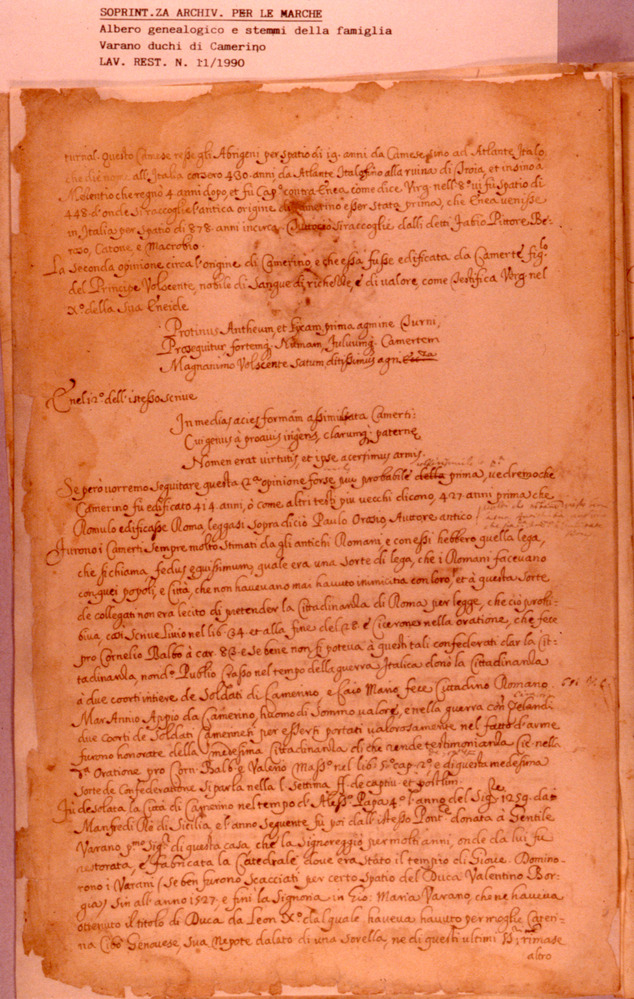 SOPRINT.ZA ARCHIV. PER LE MARCHE
Albero genealogico e stemmi della famiglia
Varano duchi di Camerino
LAV. REST. N. 11/1990
turnal. Questo Camese resse gli Aborigeni per spatio di 19. anni da Camese fino ad Atlante Italo
che diè nome all'Italia corsero 430. anni da Atlante Italo fino alla ruina di Troia, et insino à
Mesentio che regnò 4 anni dopo, et fu Cap.º contra Enea, come dice Virg. nell'8º vi fu spatio di
448. d'onde si raccoglie l'antica origine di Camerino esser stata prima, che Enea venisse
in Italia per spatio di 878. anni incirca si raccoglie dalli detti Fabio Pittore, Be-
roso, Catone, e Macrobio.
La Seconda opinione circa l'origine di Camerino, è che essa fusse edificata da Camerte fig.lo
del Principe Volscente, nobile di sangue di richezze, e di valore, come testifica Virg. nel
Xº della sua Eneide
Protinus Antheum, et Lycam, prima agmine Turni,
Prosequitur, fortemq; Numam, fuluumq; Camertem
Magnanimo Volscente satum, ditissimus agri
E nel 12º dell'istesso scrive
In medias acies formam assimulata Camerti:
Cui genus à proavis ingens, clarumq; paternę
Nomen erat virtutis, et ipse acerrimus armis.
Se però vorremo seguitare questa 2ª opinione forse più probabile della prima, vedremo che
Camerino fu edificato 414. anni, ò come altri testi più vecchi dicono, 427 anni prima che
Romulo edificasse Roma, leggasi sopra di ciò Paulo Orosio Autore antico
Furono i Camerti sempre molto stimati da gli antichi Romani e con essi hebbero quella lega,
che si chiama, fedus equissimum, quale era una sorte di lega, che i Romani facevano
con quei popoli, e Città, che non havevano mai havuto inimicitia con loro, et à questa sorte
de collegati non era lecito di pretender la Cittadinanza di Roma per legge, che ciò prohi-
biva, così scrive Livio nel lib. 34 et alla fine del 28. e Cicerone nella oratione, che fece
pro Cornelio Balbo à car. 82. e se bene non si poteva à questi tali confederati dar la Cit-
tadinanza, nond.º Publio Crasso nel tempo della guerra Italica donò la Cittadinanza
à due coorti intiere de Soldati di Camerino e Caio Mario fece Cittadino Romano
Mar. Annio Appio da Camerino, huomo di sommo valore, e nella guerra con
due coorti de Soldati Camerinesi per essersi portati valorosamente nel fatto d'arme
furono honorate della medesima Cittadinanza di che rende testimonianza Cic. nella
Oratione pro Corn. Balb. e Valerio Mass.º nel lib. 5º cap. 2º e di questa medesima
sorte de Confederatione si parla nella l. Settima ff. de captiu. et postlim.
Fu desolata la Città di Camerino nel tempo di Aless.º Papa 4º l'anno del Sig.re 1259. da
Manfredi Rè di Sicilia, e l'anno seguente fu poi dall'istesso Pont.e donata à Gentile
Varano p.mo Sig.re di questa casa, che la signoreggiò per molti anni, onde da lui fu
restorata, e fabricata la Catedrale dove era stato il tempio di Giove. Domino-
rono i Varani (se ben furono scacciati per certo spatio dal Duca Valentino Bor-
gia) sin all'anno 1527. e finì la Signoria in Gio: Maria Varano, che ne haveva
ottenuto il titolo di Duca da Leon Xº dal quale haveva havuto per moglie Cateri-
na Cibò Genovese, sua Nepote da lato di una sorella, ne di questi ultimi SS.ri rimase
altro